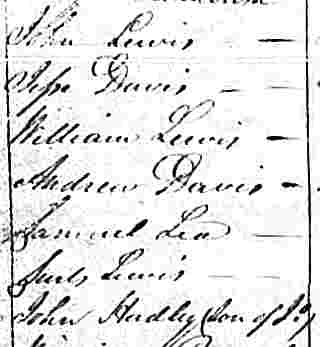 John Lewis —
Jesse Davis — —
William Lewis —
Andrew Davis —
Samuel Lea —
Lewis —
John Hadley (Son of J.